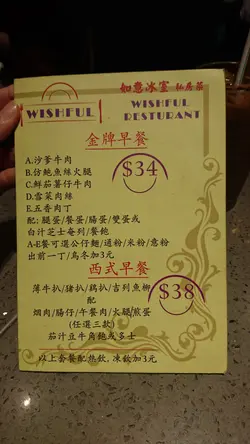 WISHFUL
如意冰室 私房菜
WISHFUL
RESTURANT
金牌早餐
A.沙爹牛肉
B.仿鮑魚絲火腿
C.鮮茄薯仔牛肉
D.雪菜肉絲
E.五香肉丁
$34
配: 腿蛋/餐蛋/腸蛋/雙蛋或
白汁芝士卷列/餐飽
A-E餐可選公仔麵/通粉/米粉/意粉
出前一丁/烏冬加3元
西式早餐
薄牛扒/豬扒/鷄扒/吉列魚柳
配
$38
烟肉/腸仔/午餐肉/火腿/煎蛋
(任選三款)
茄汁豆牛角飽或多士
以上套餐配熱飲, 凍飲加3元